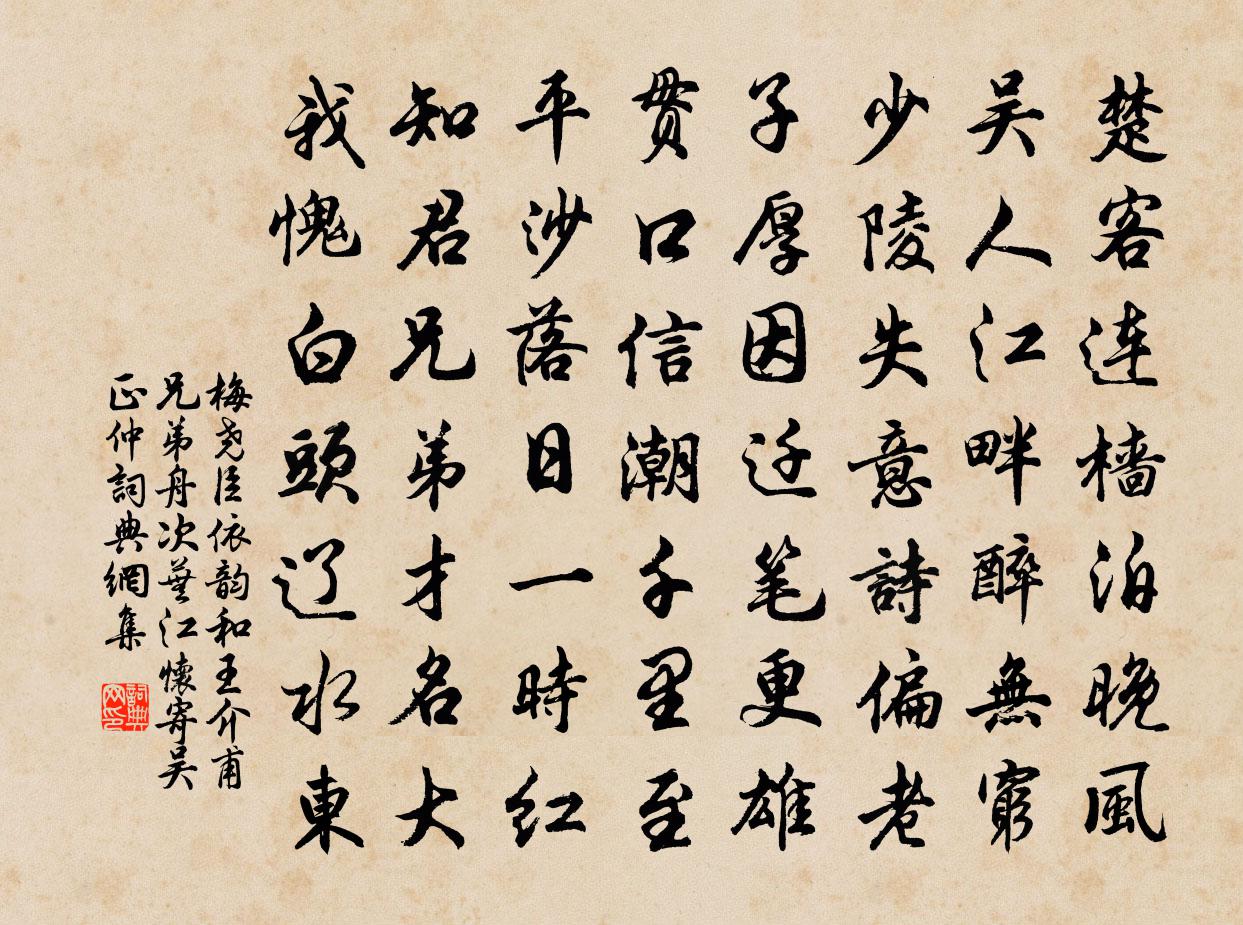 楚客连檣泊晚風
吴人江畔醉無窮
少陵失意詩偏老
子厚因迁笔更雄
贯口信潮千里至
平沙落日一時红
知君兄弟才名大
我愧白頭辽水東
梅尧臣依韵和王介甫
兄弟舟次芜江懷寄吴
正仲詞典網集
詞典
网印